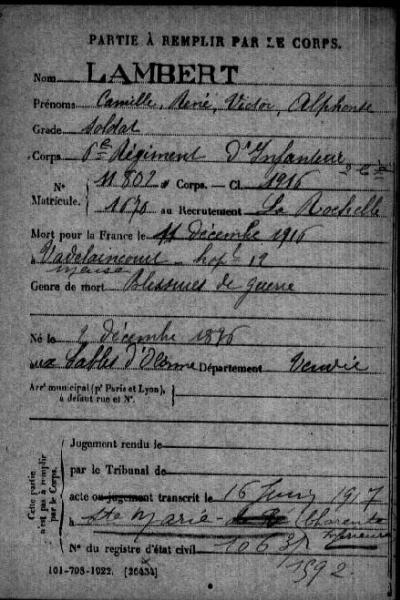 PARTIE À REMPLIR PAR LE CORPS.
Nom LAMBERT
Prénoms Camille, René, Victor, Alphonse
Grade Soldat
Corps 6e Régiment D'Infanterie
N° Matricule. 11802 au Corps. — Cl. 1916
1670 au Recrutement La Rochelle
Mort pour la France le 11 décembre 1916
à Vadelaincourt - hop = 12
Meuse
Genre de mort Blessures de guerre
Né le 2 décembre 1896
aux Sables d'Olonne Département Vendée
Arrt municipal (pr Paris et Lyon), à défaut rue et N°.
Cette partie n'est pas à remplir par le Corps.
Jugement rendu le
par le Tribunal de
acte ou jugement transcrit le 16 Juin 1917
à Ste Marie - Charente Inférieure
N° du registre d'état civil 1063
1592
101-708-1922. [26434]